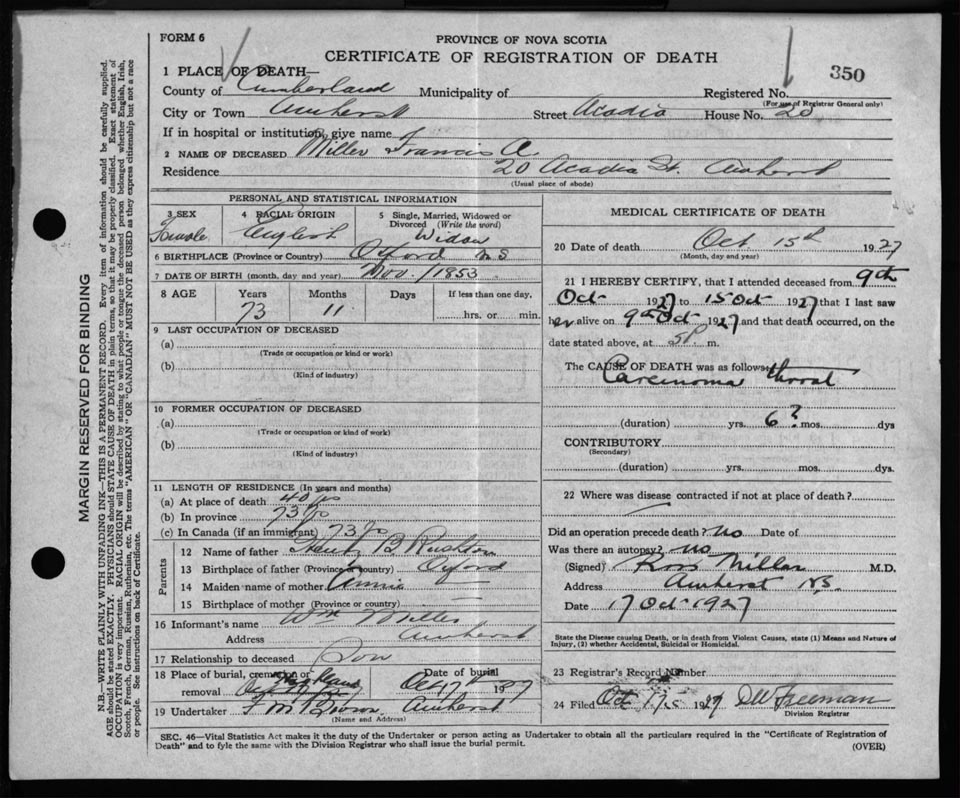 FORM 6
PROVINCE OF NOVA SCOTIA
CERTIFICATE OF REGISTRATION OF DEATH
350
1 PLACE OF DEATH—
County of Cumberland Municipality of Registered No.
(For use of Registrar General only)
City or Town Amherst Street Acadia House No. 20
If in hospital or institution, give name
2 NAME OF DECEASED Miller Francis A.
Residence 20 Acadia St. Amherst
(Usual place of abode)
PERSONAL AND STATISTICAL INFORMATION
3 SEX 4 RACIAL ORIGIN 5 Single, Married, Widowed or Divorced (Write the word)
Female English Widow
6 BIRTHPLACE (Province or Country) Oxford N.S
7 DATE OF BIRTH (month, day and year) Nov. /1853
8 AGE Years Months Days If less than one day,
73 11 hrs. or min.
9 LAST OCCUPATION OF DECEASED
(a)
(Trade or occupation or kind or work)
(b)
(Kind of industry)
10 FORMER OCCUPATION OF DECEASED
(a)
(Trade or occupation or kind of work)
(b)
(Kind of industry)
11 LENGTH OF RESIDENCE (In years and months)
(a) At place of death 40 yrs
(b) In province 73 yrs
(c) In Canada (if an immigrant) 73 yrs
Parents
12 Name of father B Rushton
13 Birthplace of father (Province or country) Oxford
14 Maiden name of mother Annie
15 Birthplace of mother (Province or country)
16 Informant's name Wm Miller
Address Amherst
17 Relationship to deceased Son
18 Place of burial, cremation or removal Date of burial
Oct 17 1927
19 Undertaker Amherst
(Name and Address)
MEDICAL CERTIFICATE OF DEATH
20 Date of death Oct 15th 1927
(Month, day and year)
21 I HEREBY CERTIFY, that I attended deceased from 9th
Oct 1927 to 15 Oct 1927 that I last saw
her alive on 9th Oct 1927 and that death occurred, on the
date stated above, at 5P m.
The CAUSE OF DEATH was as follows:
Carcinoma throat
(duration) yrs. 6? mos. dys
CONTRIBUTORY
(Secondary)
(duration) yrs. mos. dys.
22 Where was disease contracted if not at place of death?
Did an operation precede death? no Date of
Was there an autopsy? no
(Signed) Ross Millar M.D.
Address Amherst NS.
Date 17 Oct 1927
State the Disease causing Death, or in death from Violent Causes, state (1) Means and Nature of Injury, (2) whether Accidental, Suicidal or Homicidal.
23 Registrar's Record Number
24 Filed Oct 1927 DW Freeman
Division Registrar
SEC. 46—Vital Statistics Act makes it the duty of the Undertaker or person acting as Undertaker to obtain all the particulars required in the "Certificate of Registration of
Death" and to fyle the same with the Division Registrar who shall issue the burial permit.
(OVER)
MARGIN RESERVED FOR BINDING
N.B.—WRITE PLAINLY WITH UNFADING INK—THIS IS A PERMANENT RECORD. Every item of information should be carefully supplied.
AGE should be stated EXACTLY. PHYSICIANS should STATE CAUSE OF DEATH in plain terms, so that it may be properly classified. Exact statement of
OCCUPATION is very important. RACIAL ORIGIN will be described by stating to what people or tongue the deceased person belonged whether English, Irish,
Scotch, French, German, Russian, Ruthenian, etc. The terms "AMERICAN" or "CANADIAN" MUST NOT BE USED as they express citizenship but not a race
or people. See instructions on back of Certificate.